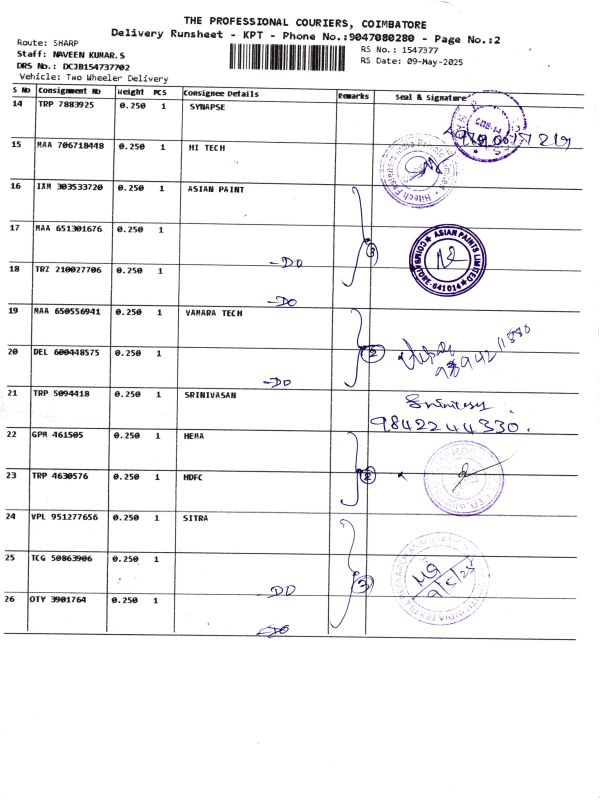 THE PROFESSIONAL COURIERS, COIMBATORE
Delivery Runsheet - KPT - Phone No.:9047080280 - Page No.:2
Route: SHARP
Staff: NAVEEN KUMAR.S
DRS No.: DCJB154737702
Vehicle: Two Wheeler Delivery
RS No.: 1547377
RS Date: 09-May-2025
S No Consignment No Weight PCS Consignee Details Remarks Seal & Signature
14 TRP 7883925 0.250 1 SYNAPSE
15 MAA 706718448 0.250 1 HI TECH
16 IXM 303533720 0.250 1 ASIAN PAINT
17 MAA 651301676 0.250 1
-DO
3
ASIAN PAINTS LIMITED
COIMBATORE-641014
18 TRZ 210027706 0.250 1
-DO
19 MAA 650556941 0.250 1 VAMARA TECH
20 DEL 600448575 0.250 1
-DO
2
21 TRP 5094418 0.250 1 SRINIVASAN
9842244330.
22 GPM 461505 0.250 1 HEMA
23 TRP 4630576 0.250 1 HDFC
2
24 VPL 951277656 0.250 1 SITRA
25 TCG 50863906 0.250 1
-DO
3
9/5/25
26 OTY 3901764 0.250 1
-DO